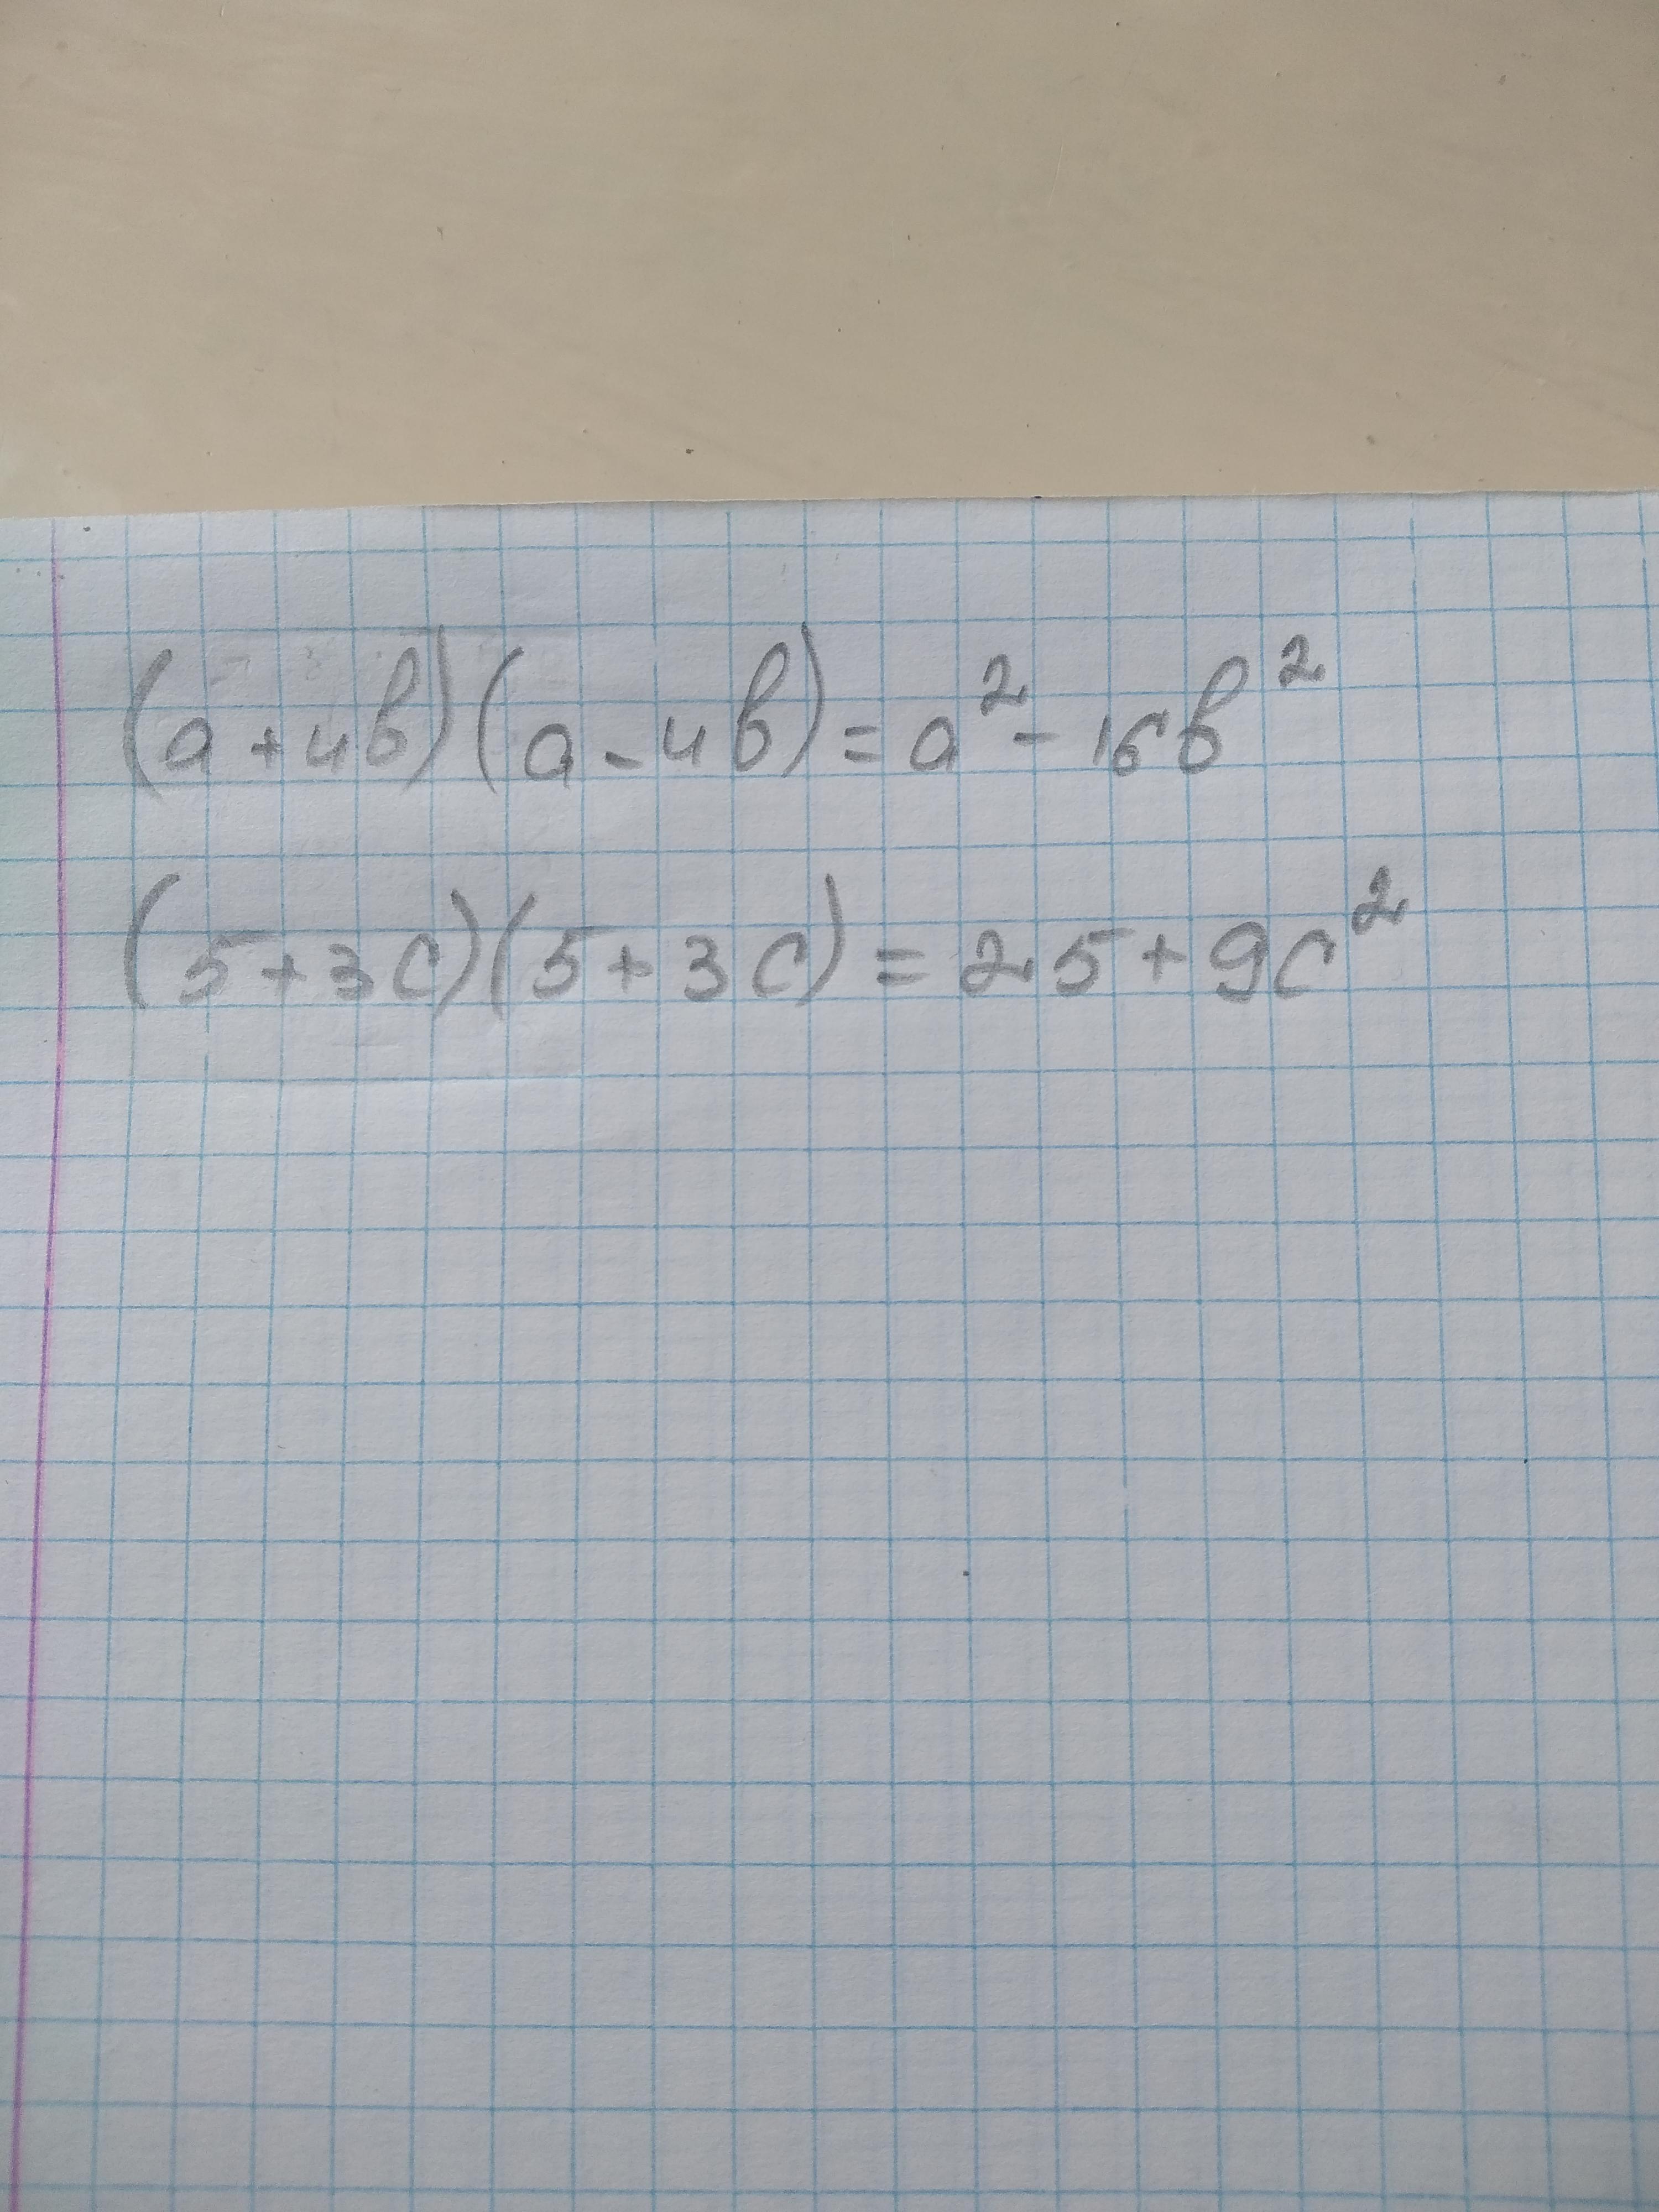 (a+4в)(a-4в)=a²-16в²
(5+3c)(5+3c)=25+9c²